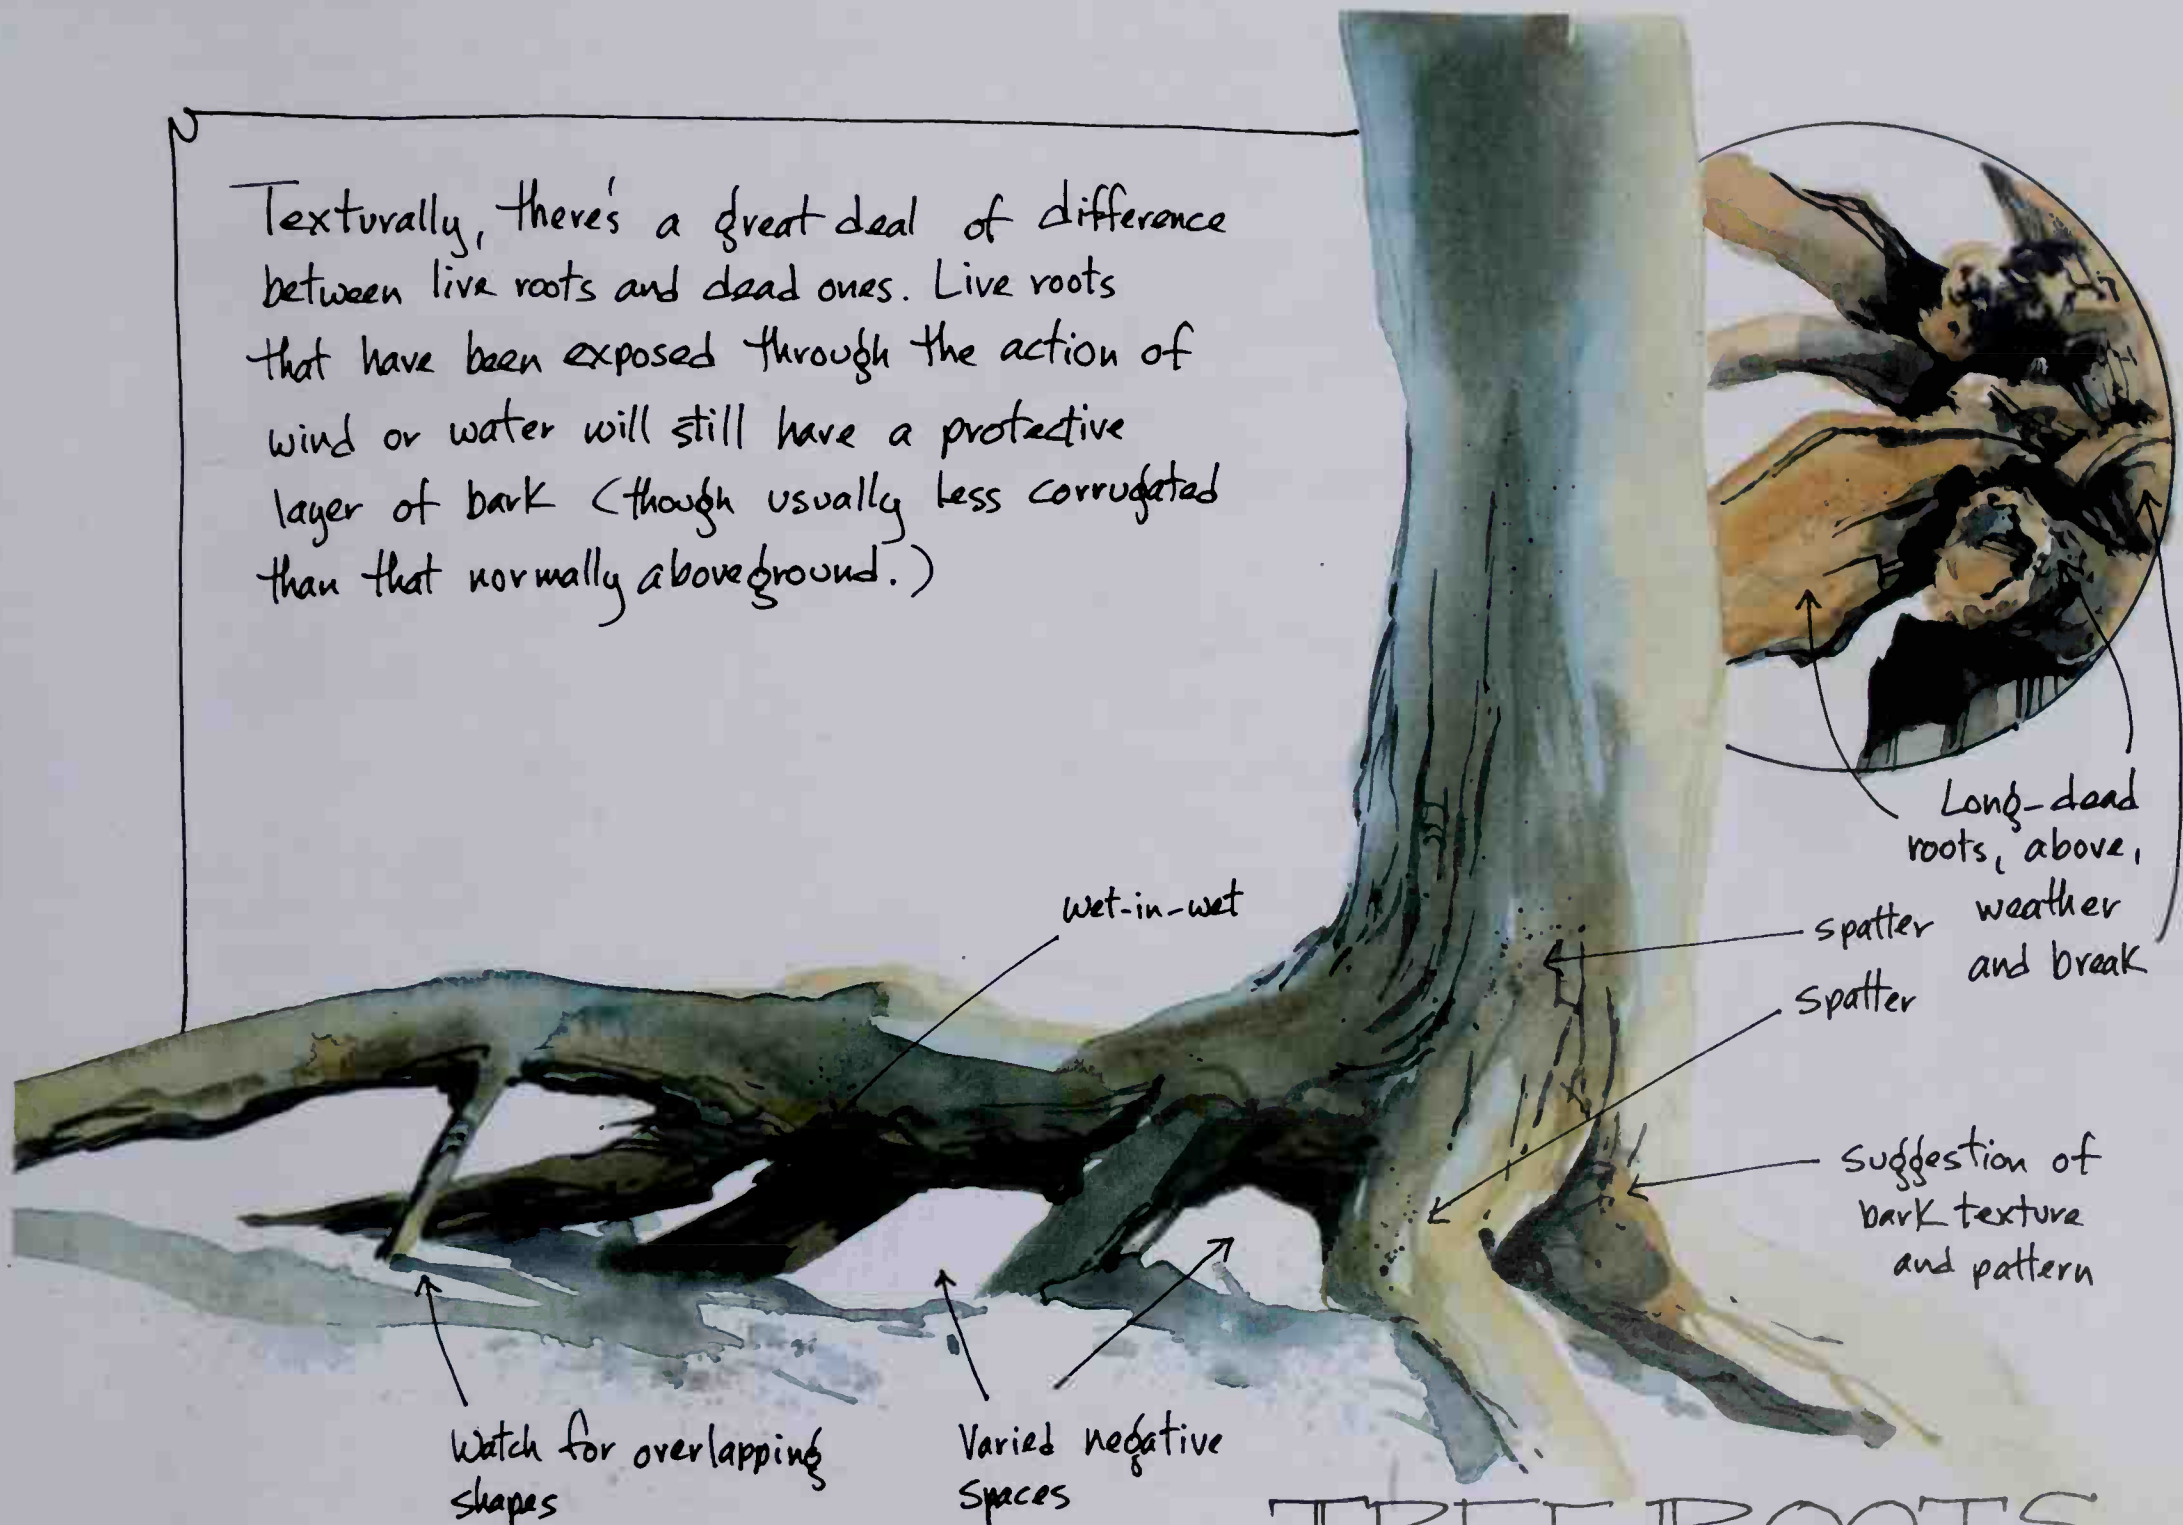 Texturally, there's a great deal of difference
between live roots and dead ones. Live roots
that have been exposed through the action of
wind or water will still have a protective
layer of bark (though usually less corrugated
than that normally aboveground.)
wet-in-wet
Long-dead
roots, above,
weather
and break
spatter
spatter
suggestion of
bark texture
and pattern
Watch for overlapping
shapes
Varied negative
spaces
TREE ROOTS